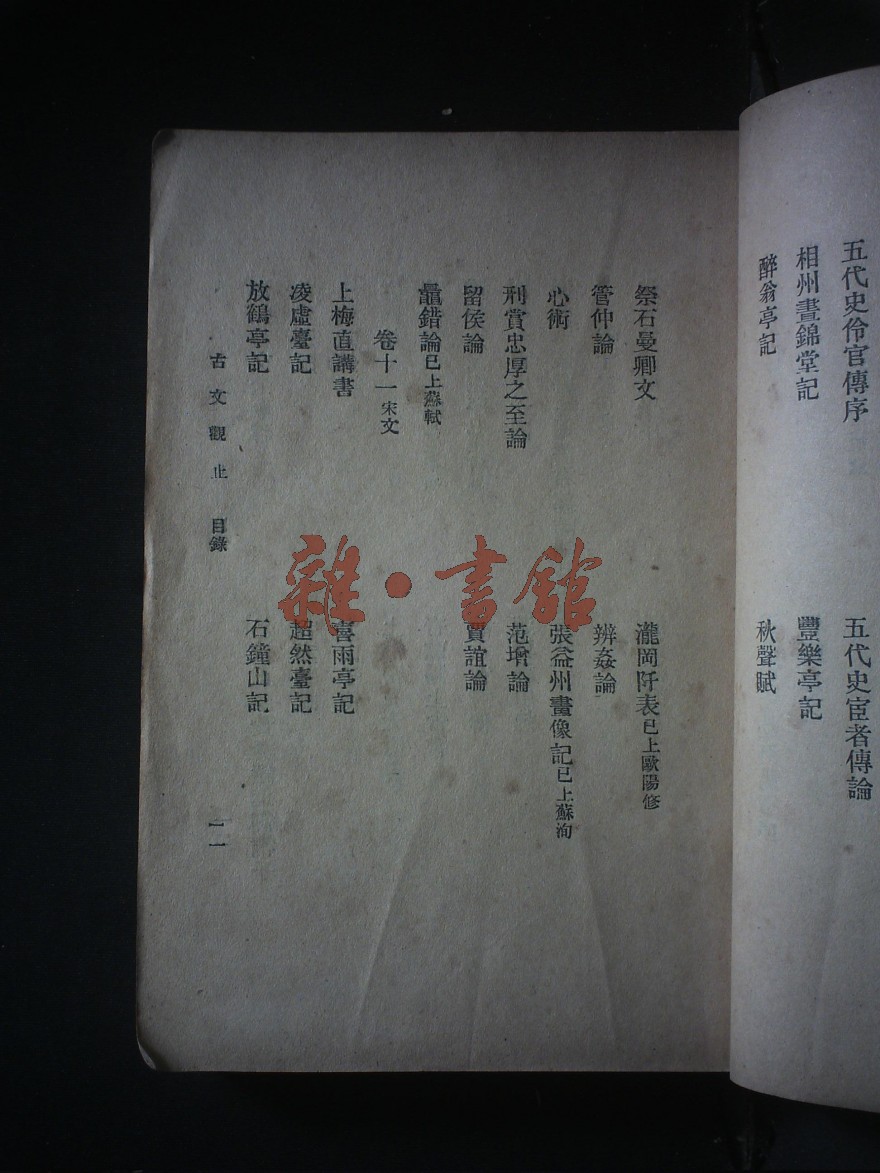 五代史伶官傳序 五代史宦者傳論
相州晝錦堂記 豐樂亭記
醉翁亭記 秋聲賦
祭石曼卿文 瀧岡阡表已上歐陽修
管仲論 辨姦論
心術 張益州畫像記已上蘇洵
刑賞忠厚之至論 范增論
留侯論 賈誼論
鼂錯論已上蘇軾
卷十一宋文
上梅直講書 喜雨亭記
凌虛臺記 超然臺記
放鶴亭記 石鐘山記
古文觀止 目錄
雜·書館